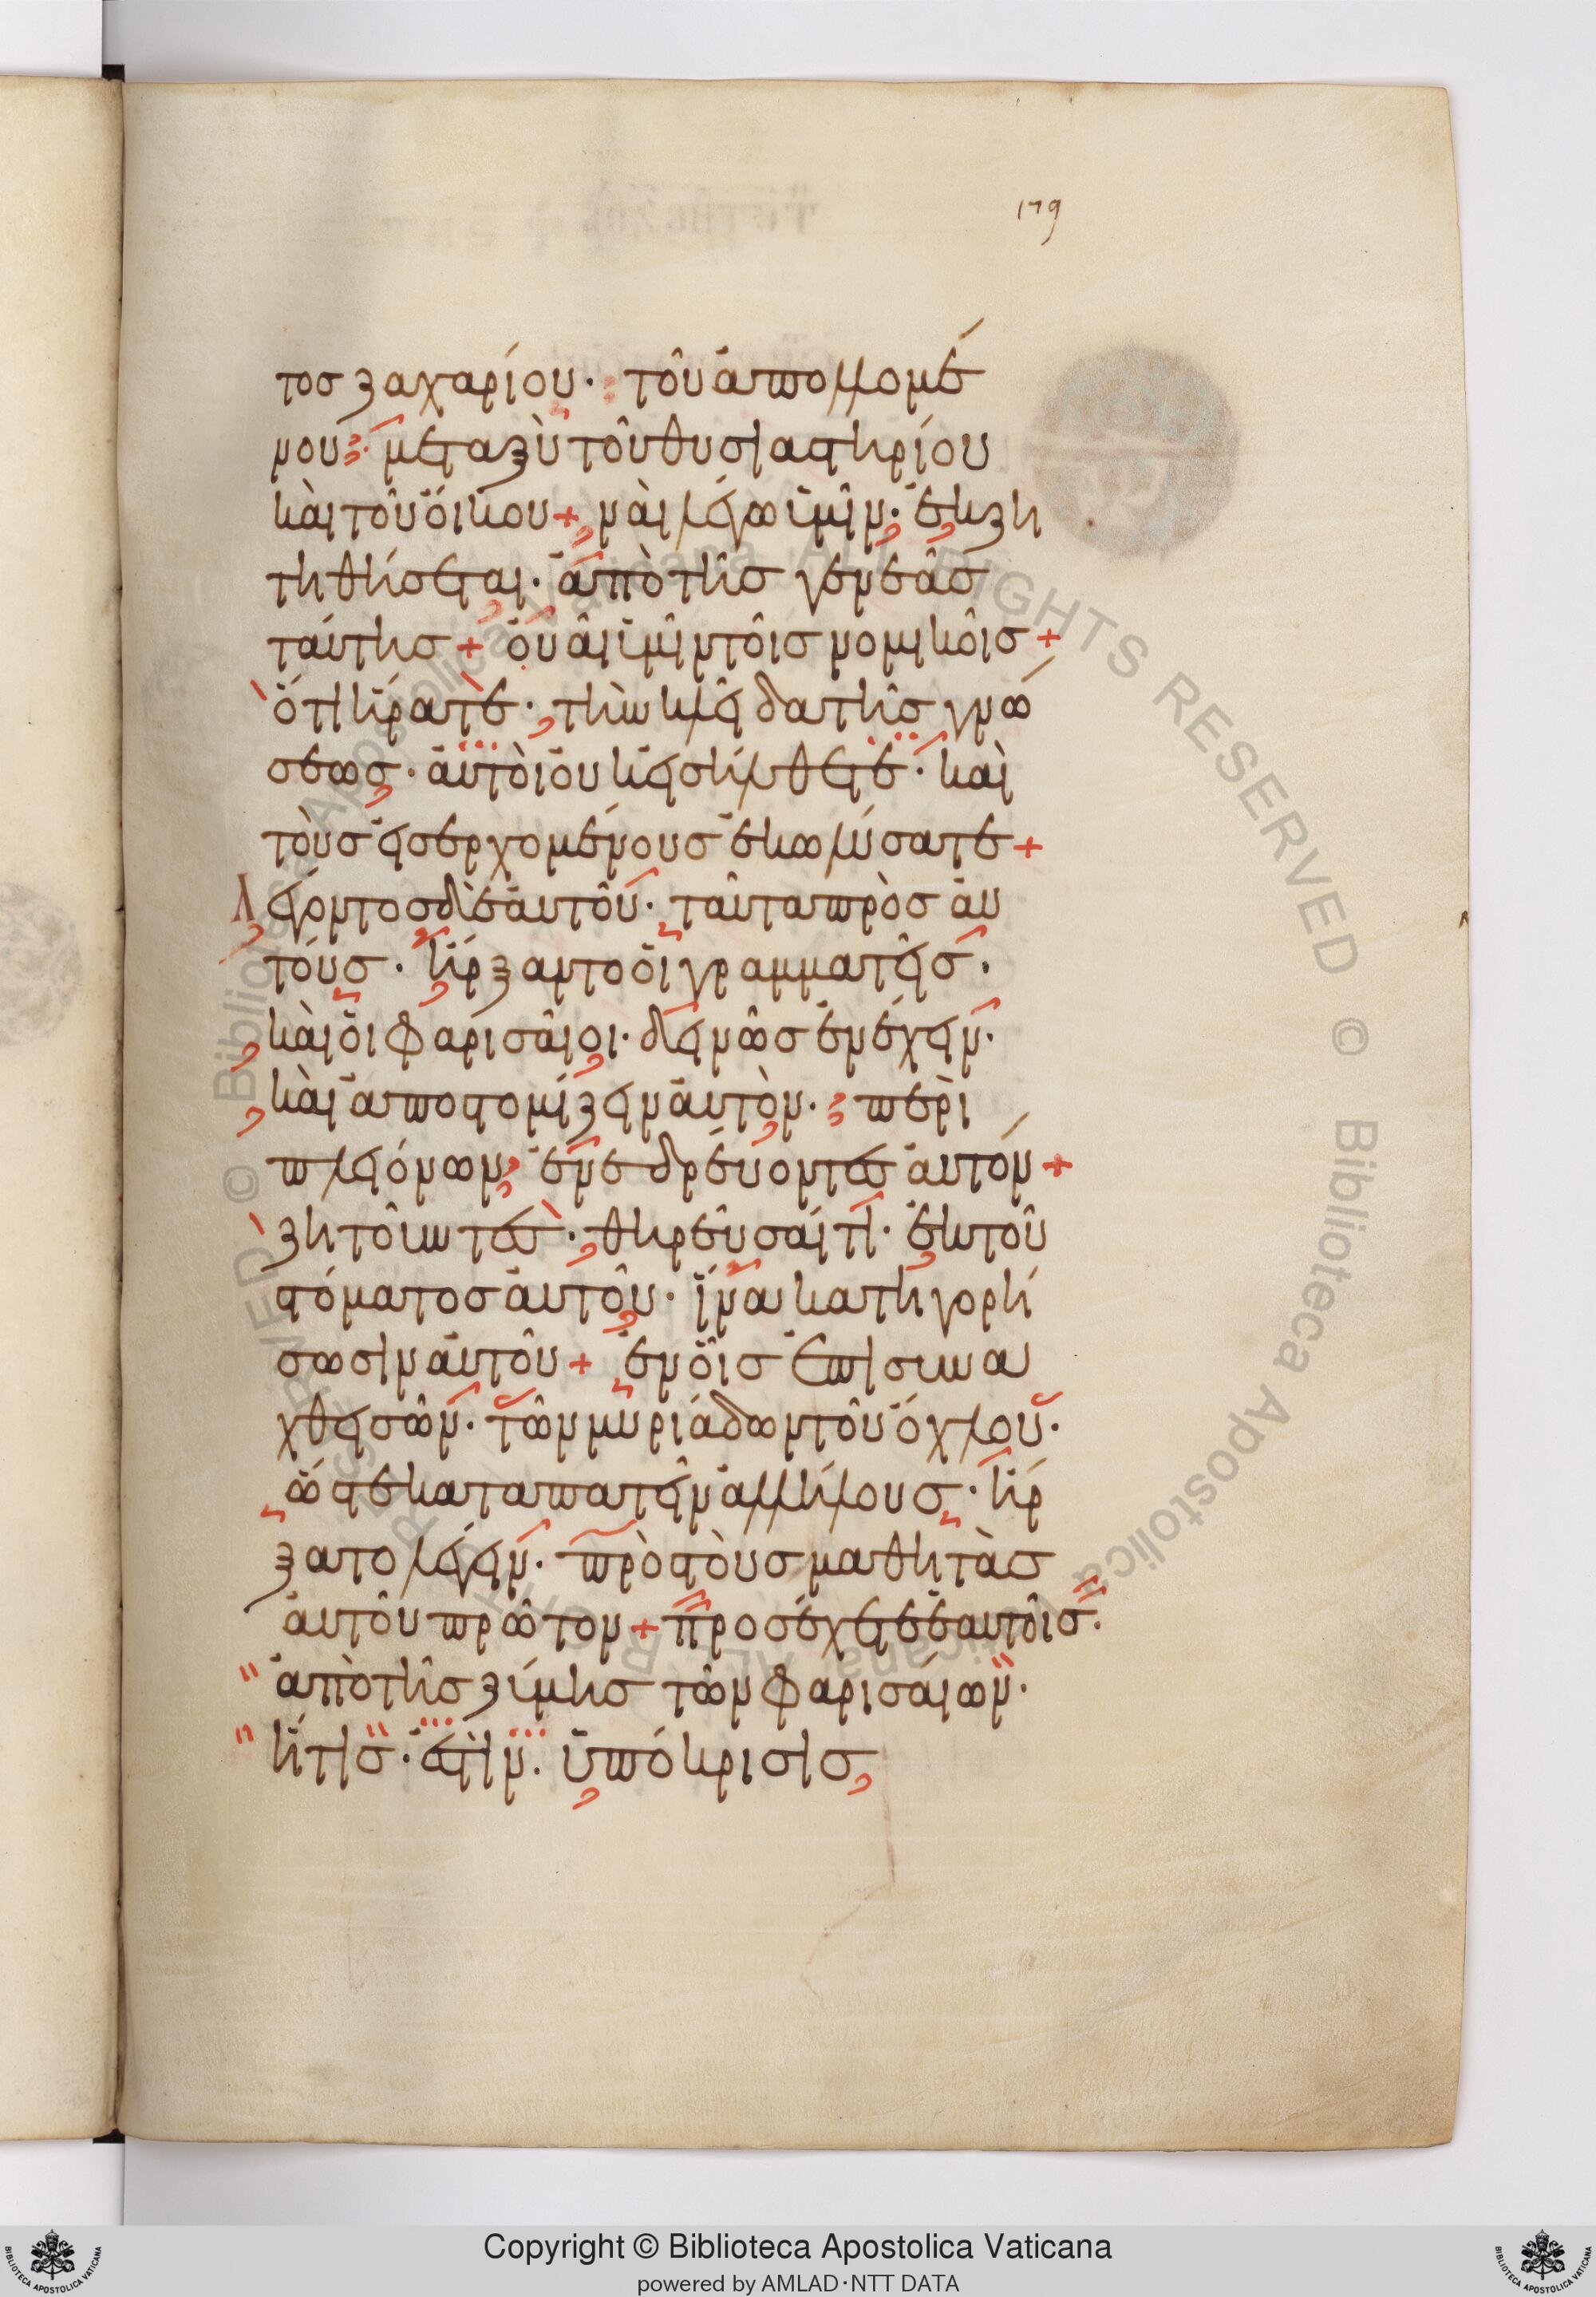 179
τος ζαχαρίου· τοῦ ἀπολλομέ
νου· μεταξὺ τοῦ θυσιαστηρίου
καὶ τοῦ ὄικου + ναὶ λέγω ὑμῖν· ἐκζη
τηθήσεται· ἀπὸ τῆς γενεᾶς
ταύτης + ὀυᾶι ὑμῖν τοῖς νομικοῖς +
ὅτι ἤρατε· τὴν κλεῖδα τῆς γνώ
σεως· ἀυτὸι ὀυκ εἰσήλθετε· καὶ
τοὺς εἰσερχομένους ἐκωλύσατε +
Λέγοντος δὲ ἀυτοῦ· ταῦτα πρὸς ἀυ
τούς· ἤρξαντο ὁι γραμματεῖς·
καὶ ὁι φαρισαῖοι· δεινῶς ἐνέχειν·
καὶ ἀποστομίζειν ἀυτὸν· περὶ
πλειόνων· ἐνεδρέυοντες ἀυτόν +
ζητοῦντες· θηρεῦσαί τι· ἐκ τοῦ
στόματος ἀυτοῦ· ἵνα κατηγορή
σωσιν ἀυτοῦ + ἐν οἷς ἐπισυνα
χθεισῶν· τῶν μυριάδων τοῦ ὄχλου·
ὥστε καταπατεῖν ἀλλήλους· ἤρ
ξατο λέγειν· πρὸς τοὺς μαθητὰς
ἀυτοῦ πρῶτον + προσέχετε ἑαυτοῖς·
ἀπὸ τῆς ζύμης τῶν φαρισαίων·
ἥτις· ἐστὶν· ὑπόκρισις
© Biblioteca Apostolica Vaticana ALL RIGHTS RESERVED © Biblioteca Apostolica Vaticana ALL RIGHTS RESERVED
Copyright © Biblioteca Apostolica Vaticana
powered by AMLAD·NTT DATA
BIBLIOTECA APOSTOLICA VATICANA
BIBLIOTECA APOSTOLICA VATICANA